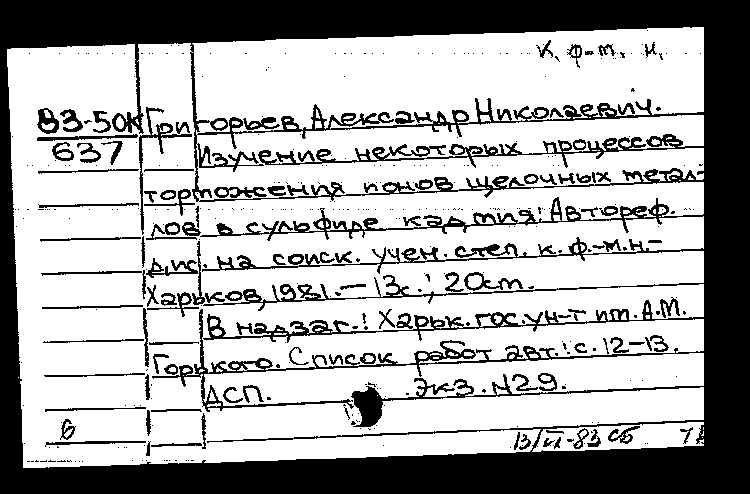 к. ф-т. н.
83-50К Григорьев, Александр Николаевич.
637 Изучение некоторых процессов
торможения ионов щелочных метал-
лов в сульфиде кадмия: Автореф.
дис. на соиск. учен. степ. к. ф.-м.н.-
Харьков, 1981.— 13с.; 20см.
В надзаг.: Харьк. гос. ун-т им. А.М.
Горького. Список работ авт.: с. 12-13.
ДСП. Экз. №29.
б
13/VI-83 сб